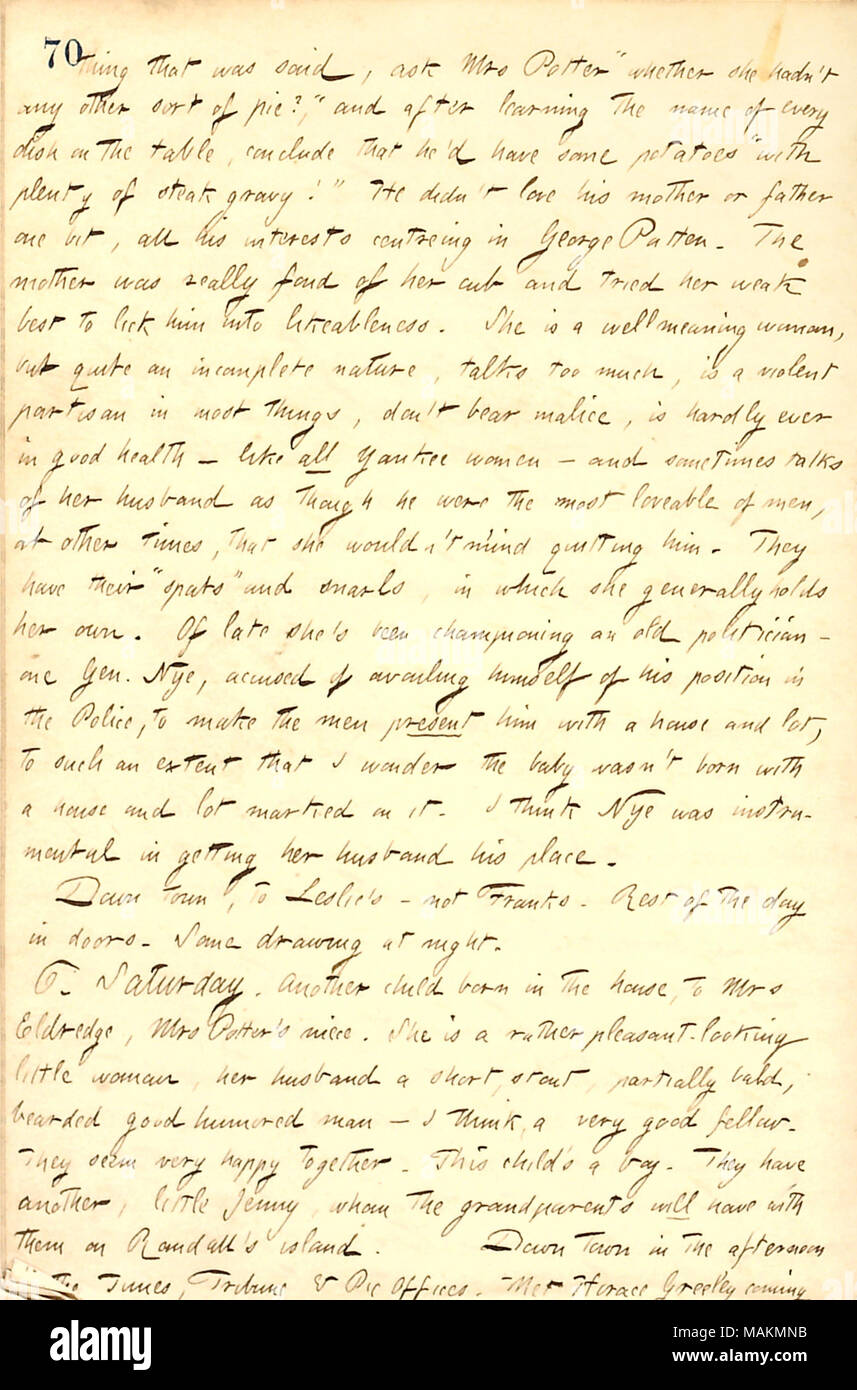 70
thing that was said, ask Mrs Potter "whether she hadn't
any other sort of pie?," and after learning the name of every
dish on the table, conclude that he'd have some potatoes "with
plenty of steak gravy!" He didn't love his mother or father
one bit, all his interests centreing in George Patten. The
mother was really fond of her cub and tried her weak
best to lick him into likeableness. She is a wellmeaning woman,
but quite an incomplete nature, talks too much, is a violent
partisan in most things, don't bear malice, is hardly ever
in good health — like all Yankee women — and sometimes talks
of her husband as though he were the most loveable of men,
at other times, that she wouldn't mind quitting him. They
have their "spats" and snarls, in which she generally holds
her own. Of late she's been championing an old politician —
one Gen. Nye, accused of availing himself of his position in
the Police, to make the men present him with a house and lot,
to such an extent that I wonder the baby wasn't born with
a house and lot marked on it. I think Nye was instru-
mental in getting her husband his place.
Down town, to Leslie's — not Frank's. Rest of the day
in doors. Some drawing at night.
6. Saturday. Another child born in the house, to Mrs
Eldredge, Mrs Potter's niece. She is a rather pleasant-looking
little woman, her husband a short, stout, partially bald,
bearded good humored man — I think, a very good fellow.
They seem very happy together. This child's a boy. They have
another, little Jenny, whom the grandparents will have with
them on Randall's island. Down town in the afternoon
to the Times, Tribune & Pic Offices. Met Horace Greeley coming
alamy
Image ID: MAKMNB
www.alamy.com